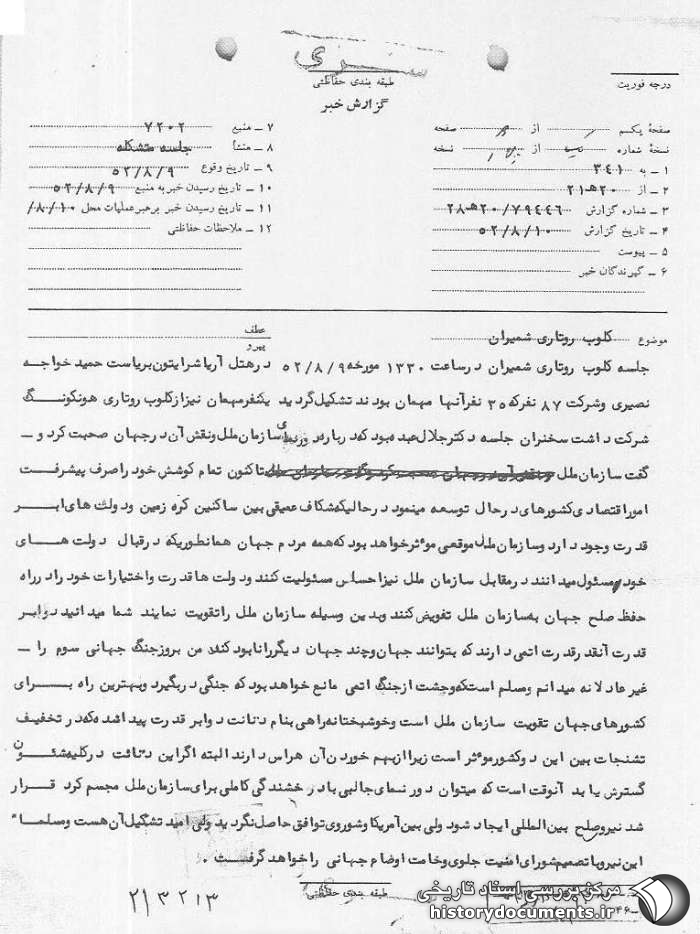 سری
طبقه بندی حفاظتی
گزارش خبر
درجه فوریت
صفحه یکم از صفحه
نسخهٔ شماره از نسخه
۱ ـ به ۳۴۱
۲ ـ از ۲۰هـ۲۱
۳ ـ شماره گزارش ۲۰/۷۹۴۴۶هـ۲۸
۴ ـ تاریخ گزارش ۵۲/۸/۱۰
۵ ـ پیوست
۶ ـ گیرندگان خبر
۷ ـ منبع ۷۲۰۲
۸ ـ منشأ جلسه متشکله
۹ ـ تاریخ وقوع ۵۲/۸/۹
۱۰ ـ تاریخ رسیدن خبر به منبع ۵۲/۸/۹
۱۱ ـ تاریخ رسیدن خبر برهبرعملیات محل ۸/۱۰/
۱۲ ـ ملاحظات حفاظتی
موضوع کلوب روتاری شمیران
عطف
پیرو
جلسه کلوب روتاری شمیران درساعت ۱۳۳۰ مورخه ۵۲/۸/۹ درهتل آریا شرایتون بریاست حمید خواجه
نصیری وشرکت ۸۷ نفرکه ۳۵ نفرآنها مهمان بودند تشکیل گردید یکنفرمهمان نیزازکلوب روتاری هونکونگ
شرکت داشت سخنران جلسه دکترجلال عبده بود که درباره سازمان ملل ونقش آن درجهان صحبت کرد و ـ
گفت سازمان ملل تاکنون تمام کوشش خود را صرف پیشرفت
امور اقتصادی کشورهای درحال توسعه مینمود درحالیکه شکاف عمیقی بین ساکنین کره زمین ودولت های ابر
قدرت وجود دارد وسازمان ملل موقعی موثرخواهد بود که همه مردم جهان همانطوریکه درقبال دولت های
خود مسئول میدانند درمقابل سازمان ملل نیزاحساس مسئولیت کنند ودولت ها قدرت واختیارات خود را درراه
حفظ صلح جهان به سازمان ملل تفویض کنند وبدین وسیله سازمان ملل راتقویت نمایند شما میدانید دوابر
قدرت آنقدر قدرت اتمی دارند که بتوانند جهان وچند جهان دیگررانابود کند من بروز جنگ جهانی سوم را ـ
غیرعادلانه میدانم ومسلم است که وحشت ازجنگ اتمی مانع خواهد بود که جنگی درگیرد وبهترین راه برای
کشورهای جهان تقویت سازمان ملل است وخوشبختانه راهی بنام دتانت دوابر قدرت پیدا شده که در تخفیف
تشنجات بین این دوکشور موثر است زیرا ازبهم خوردن آن هراس دارند البته اگراین دتانت درکلیه شئون
گسترش یابد آنوقت است که میتوان دورنمای جالبی بادرخشندگی کاملی برای سازمان ملل مجسم کرد قرار
شد نیرو صلح بین المللی ایجاد شود ولی بین آمریکا وشوروی توافق حاصل نگردید ولی امید تشکیل آن هست ومسلما"
این نیرو با تصمیم شورای امنیت جلوی وخامت اوضاع جهانی را خواهد گرفت .
طبقه بندی حفاظتی
۲۱۳۲۱۳
مرکز بررسی اسناد تاریخی
historydocuments.ir